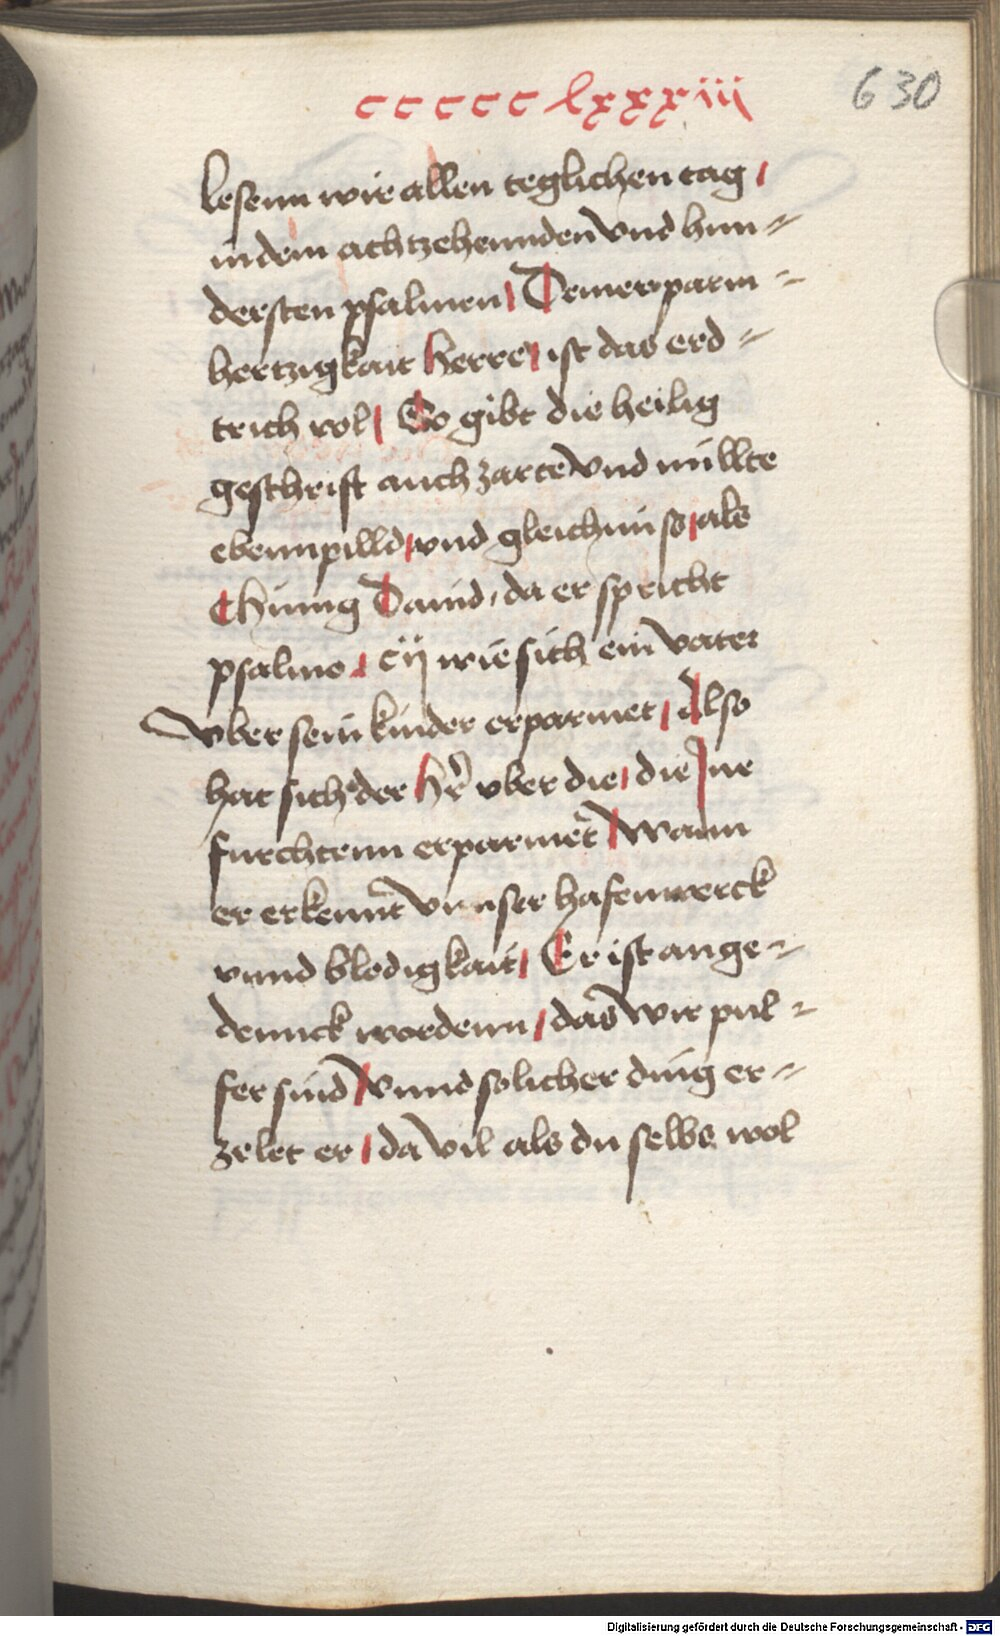 ccccc lxxxiij
630
lesenn wir allen teglichen tag /
in dem achtzehennden vnd hun=
dersten psalmen / Deiner parm=
hertzigkait herre / ist das erd=
trich vol / So gibt die heilig
geschrift auch zarte vnd millte
ebennpilld / vnd gleichnuso / als
Chunig Dauid / da er spricht
psalmo / cij wie sich ein vater
vber sein kinder erparmet / Also
hat sich der Hr̄ vber die / die Jne
furchtenn erparmet / Wann
er erkennt vnnser hafenwerck
vnnd blodigkait / Er ist ange=
dennck wordenn / das wir pul=
fer sind / vnnd solicher ding er=
zelet er / da vil als du selbs wol
Digitalisierung gefördert durch die Deutsche Forschungsgemeinschaft - DFG